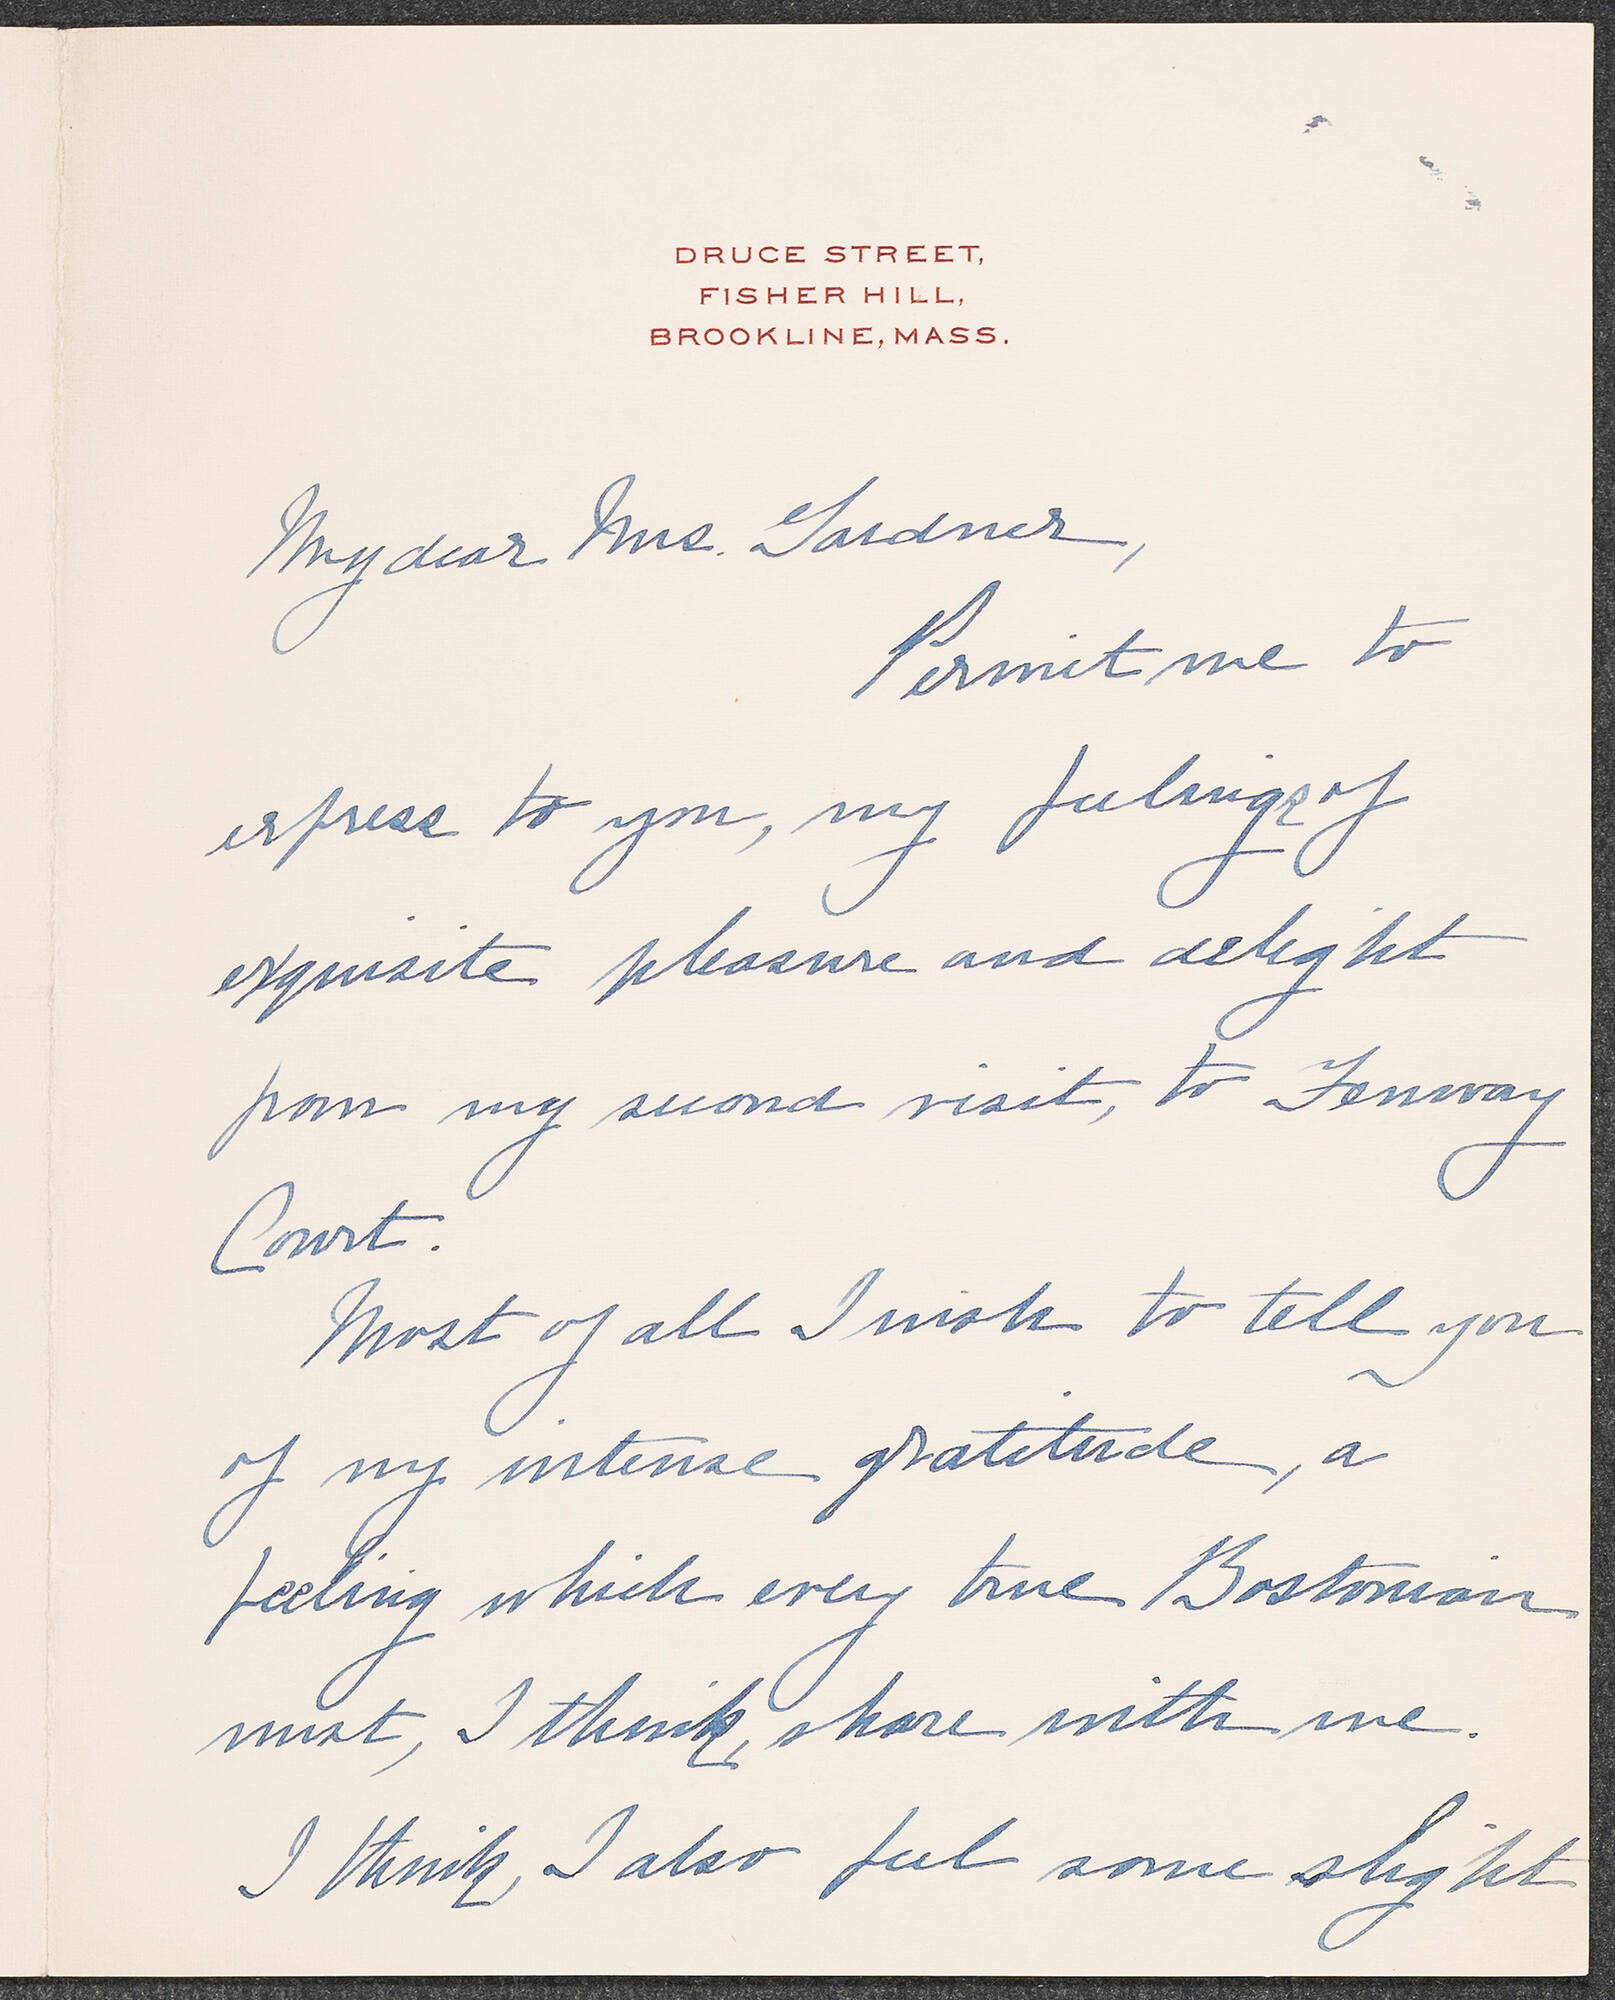 DRUCE STREET,
FISHER HILL,
BROOKLINE, MASS.
My dear Mrs. Gardner,
Permit me to
express to you, my feelings of
exquisite pleasure and delight
from my second visit, to Fenway
Court.
Most of all I wish to tell you
of my intense gratitude, a
feeling which every true Bostonian
must, I think, share with me.
I think, I also feel some slight